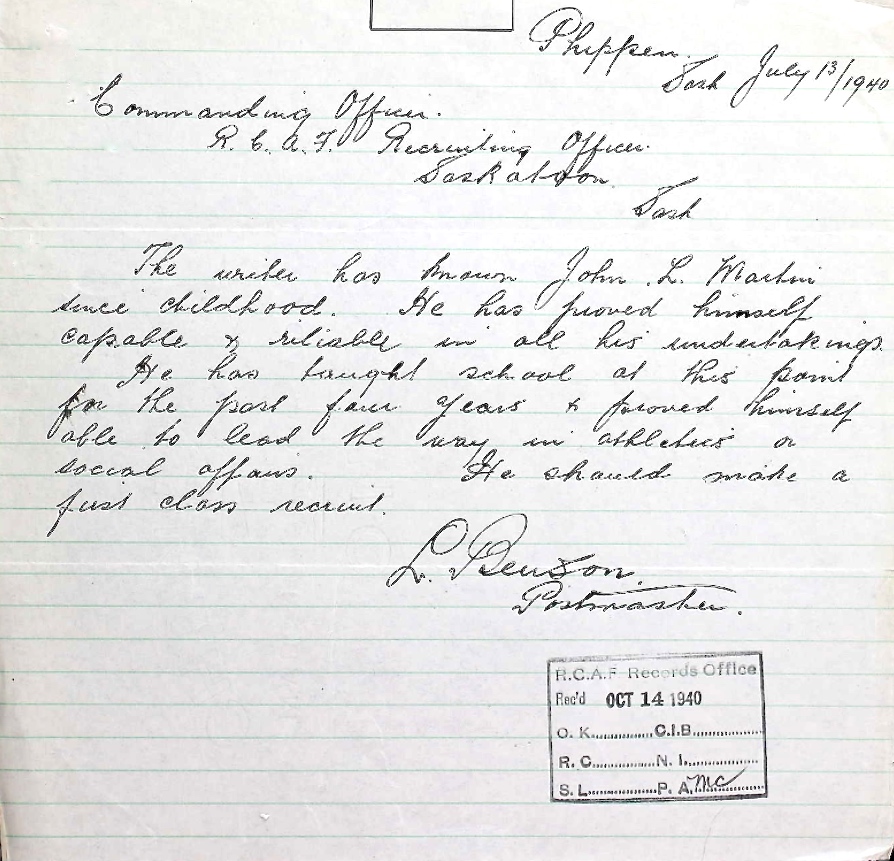 Phippen.
Sask July 13/1940
Commanding Officer.
R.C.A.F. Recruiting Officer.
Saskatoon.
Sask
The writer has known John L. Martin
since childhood. He has proved himself
capable & reliable in all his undertakings.
He has taught school at this point
for the past four years & proved himself
able to lead the way in athletics or
social affairs. He should make a
first class recruit.
L. Benson.
Postmaster.
R.C.A.F Records Office
Rec'd OCT 14 1940
O. K..............C.I.B..............
R. C..............N. I..............
S. L..............P. A. MC..............